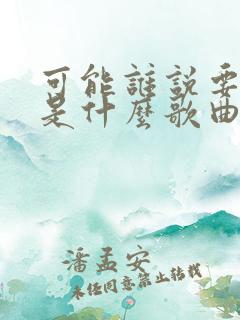 可能誰說要
是什麼歌曲
潘孟安
未經同意禁止轉載